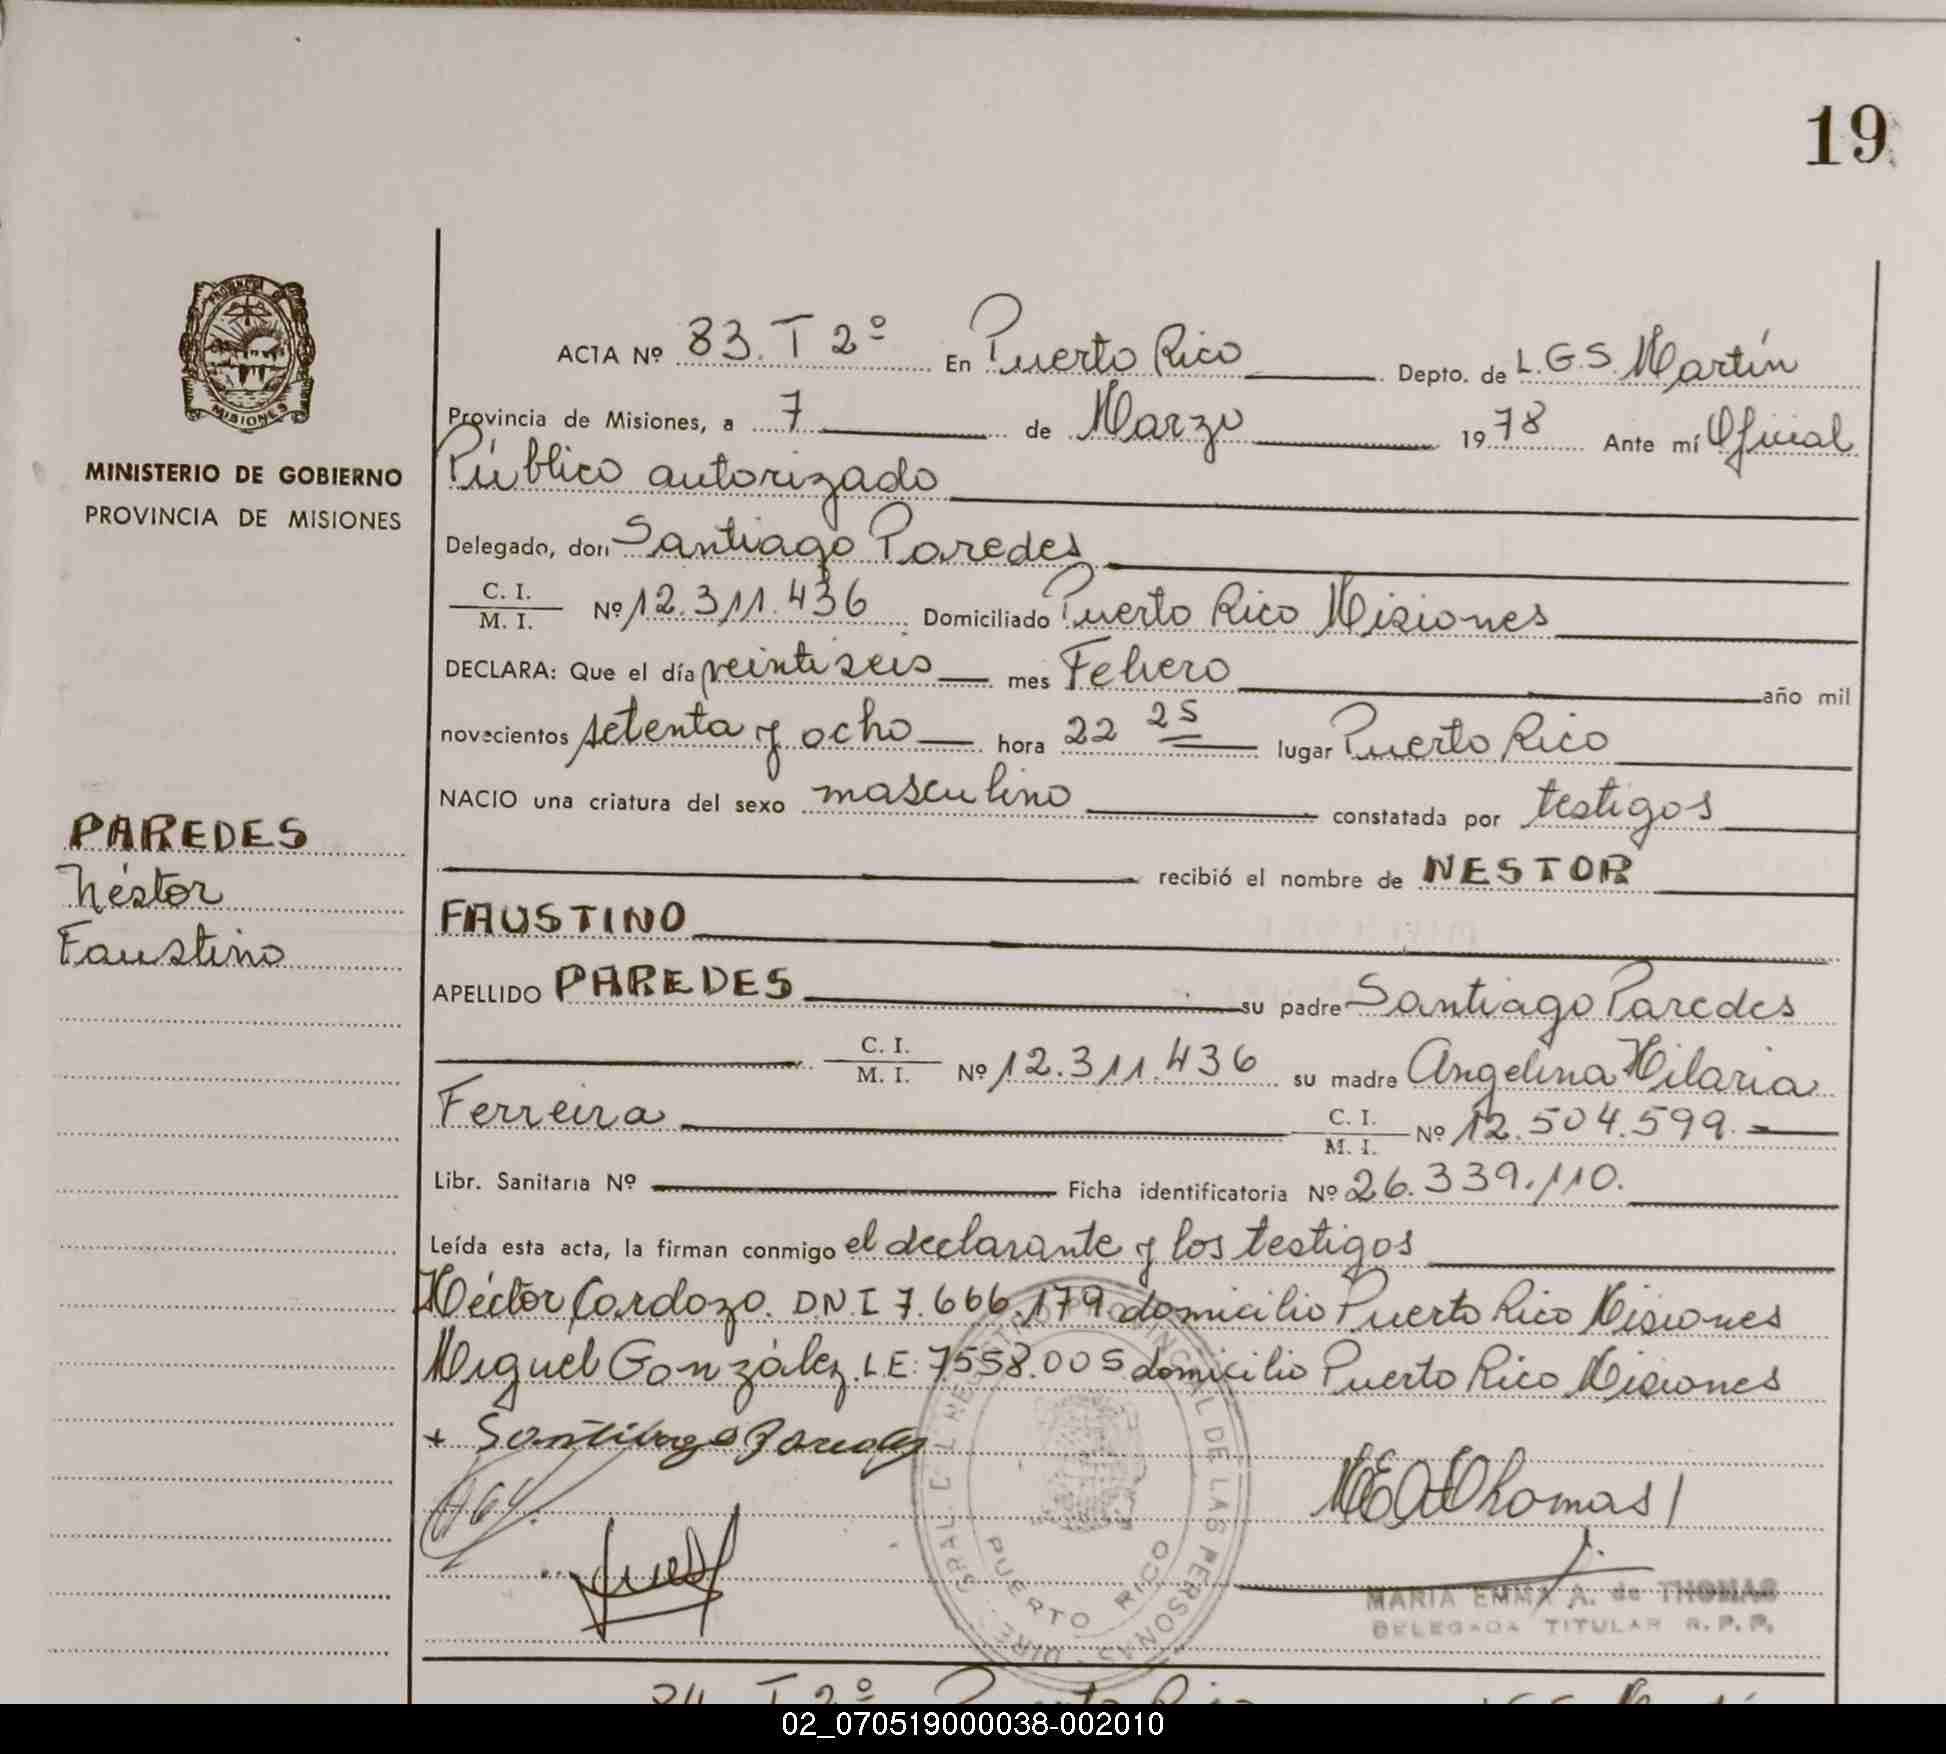 19
ACTA Nº 83. T 2º En Puerto Rico Depto. de L.G.S. Martín
Provincia de Misiones, a 7 de Marzo 1978 Ante mí Oficial
MINISTERIO DE GOBIERNO
PROVINCIA DE MISIONES
Público autorizado
Delegado, don Santiago Paredes
C. I.
M. I. Nº 12.311.436 Domiciliado Puerto Rico Misiones
DECLARA: Que el día veintiseis mes Febrero año mil
novecientos setenta y ocho hora 22 25 lugar Puerto Rico
NACIO una criatura del sexo masculino constatada por testigos
PAREDES
Néstor
Faustino
recibió el nombre de NESTOR
FAUSTINO
APELLIDO PAREDES su padre Santiago Paredes
C. I.
M. I. Nº 12.311.436 su madre Angelina Hilaria
Ferreira C. I.
M. I. Nº 12.504.599.
Libr. Sanitaria Nº Ficha identificatoria Nº 26.339.110.
Leída esta acta, la firman conmigo el declarante y los testigos
Héctor Cordozo. D.N.I 7.666.179 domicilio Puerto Rico Misiones
Miguel González. L.E: 7558.005 domicilio Puerto Rico Misiones
+ Santiago Paredes
MEAThomas
MARIA EMMA A. de THOMAS
DELEGADA TITULAR R.P.P.
PUERTO RICO
84 T 2º Puerto Rico
02_070519000038-002010
MISIONES